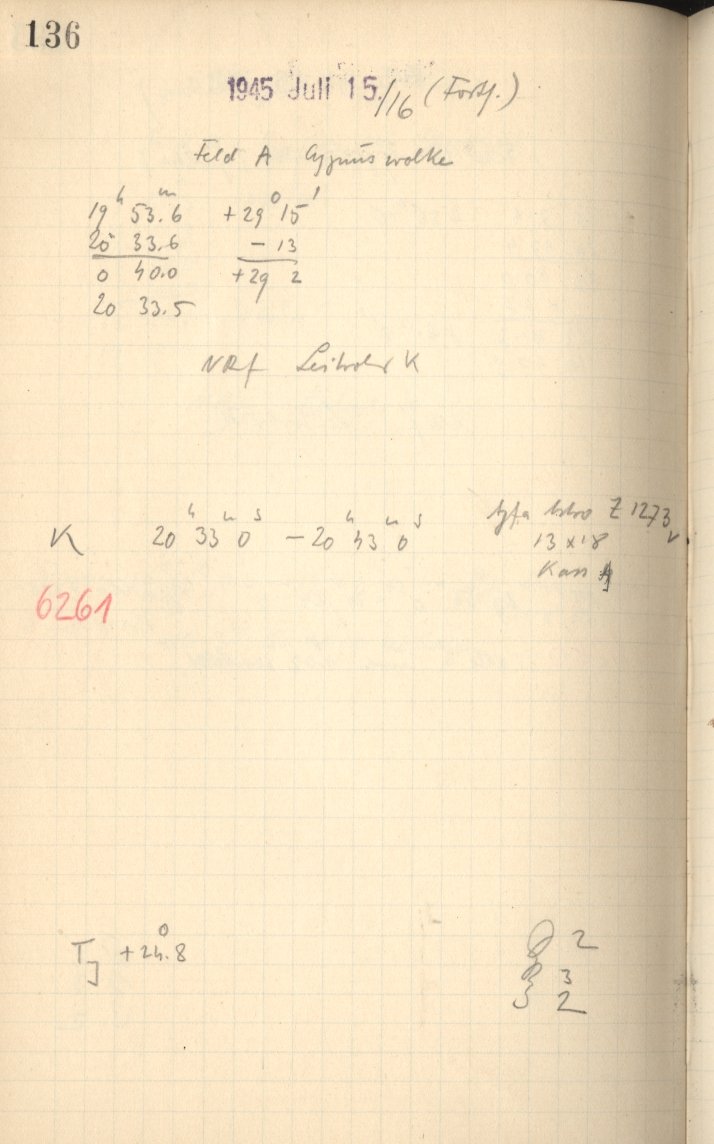 136
1945 Juli 15./16 (Forts.)
Feld A Cygnuswolke
19h 53.m6 +29° 15'
20 33.6 - 13
0 40.0 +29 2
20 33.5
NRf Leitrohr K
K 20h 33m 0s - 20h 43m 0s Agfa Astro Z 1273
13 x 18
Kass
6261
TJ +24.°8
2
3
2